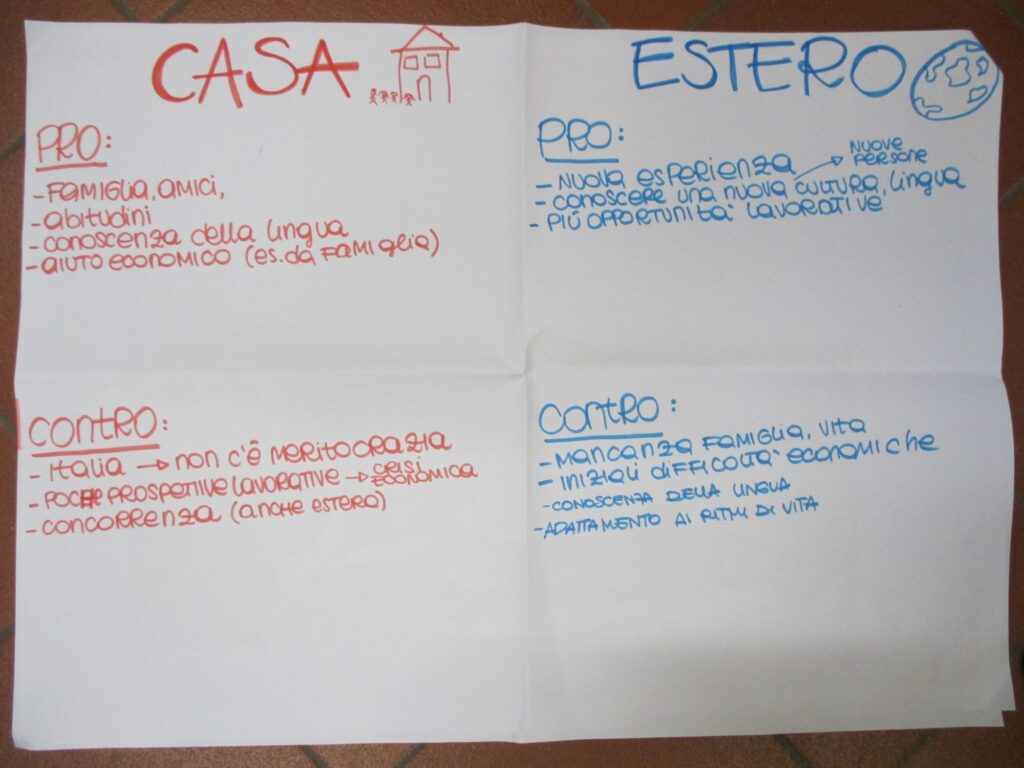 CASA
PRO:
- FAMIGLIA, AMICI,
- abitudini
- CONOSCENZA della lingua
- AIUTO ECONOMICO (es. da FAMIGLIA)
CONTRO:
- ITALIA → non c'è MERITOCRAZIA
- POCHE PROSPETTIVE LAVORATIVE → CRISI ECONOMICA
- CONCORRENZA (anche estera)
ESTERO
PRO:
- NUOVA esperienza
NUOVE
PERSONE
- CONOSCERE UNA NUOVA CULTURA, Lingua
- PIÙ OPPORTUNITA' LAVORATIVE
CONTRO:
- MANCANZA FAMIGLIA, VITA
- INIZIALI diFFICOLTA' ECONOMICHE
- CONOSCENZA DELLA LINGUA
- ADATTAMENTO AI RITMI DI VITA